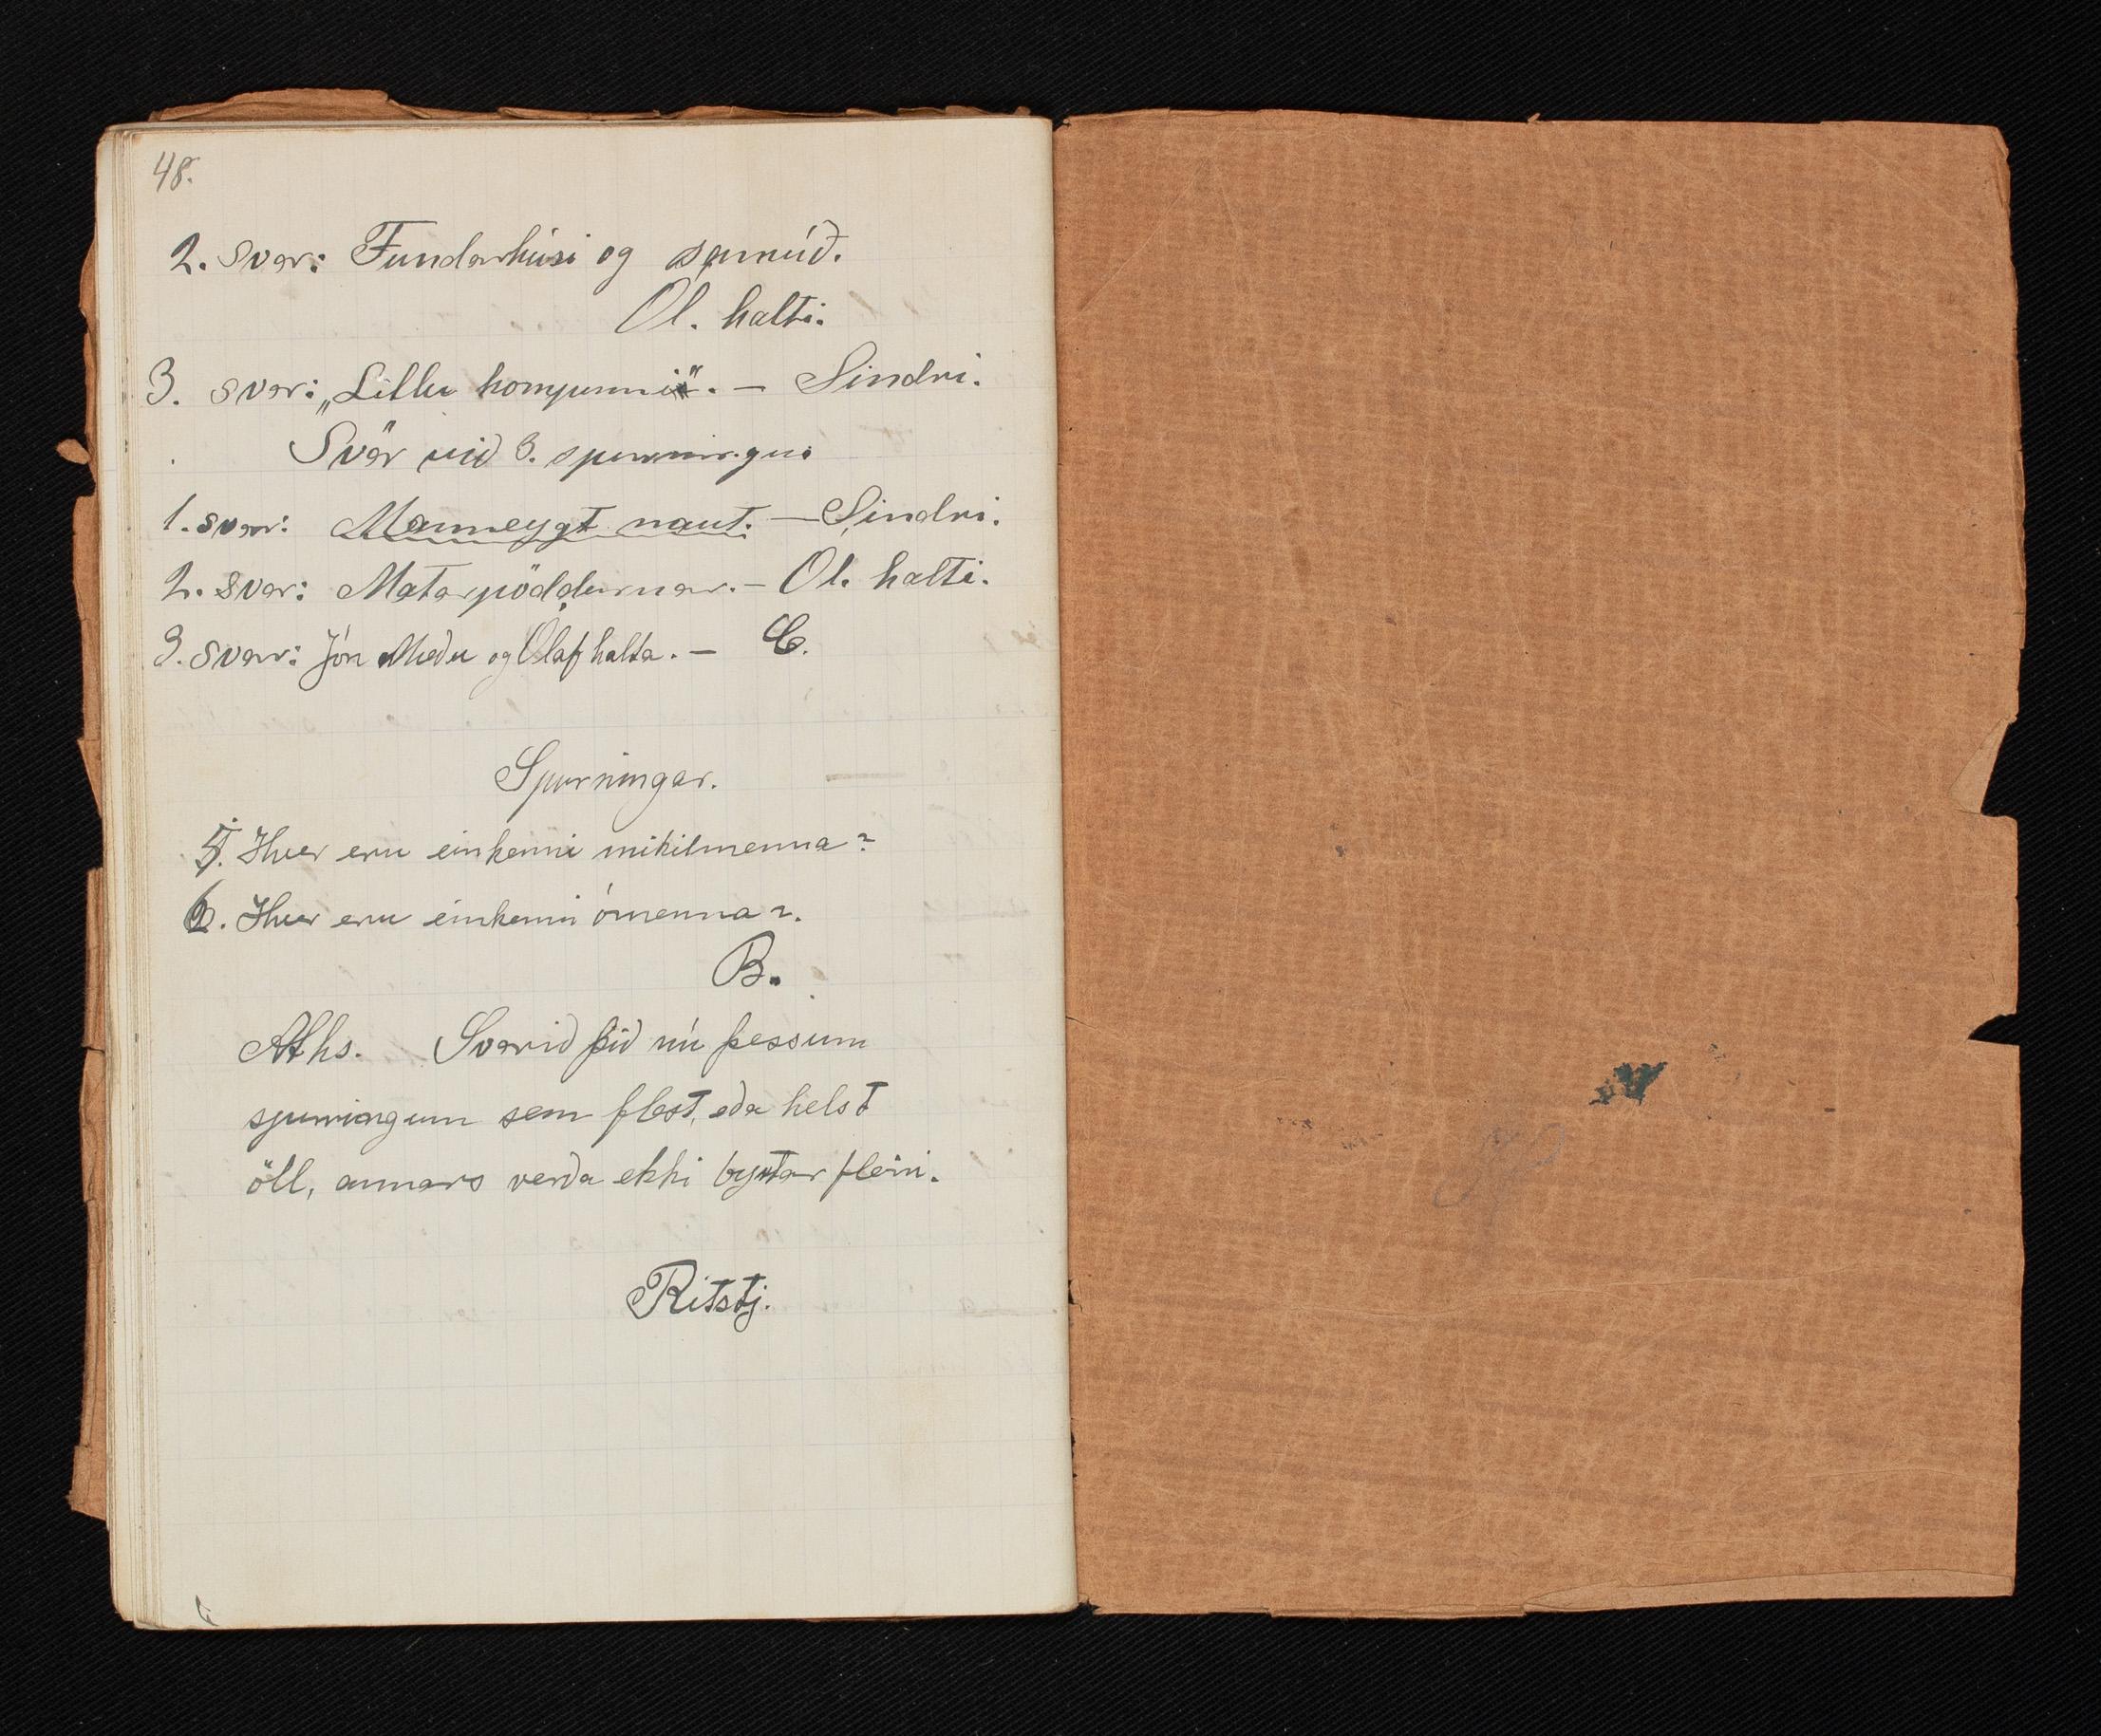 48.
2. svar: Fundarhúsi og samúð.
Ól. halti.
3. svar: „Litlu kompunni". — Sindri.
Svör við 3. spurningu:
1. svar: Manneygt naut. — Sindri.
2. svar: Matarpöddurnar. — Ól. halti.
3. svar: Jón Medu og Ólaf halta. — C.
Spurningar.
5. Hver eru einkenni mikilmenna?
6. Hver eru einkenni ómenna?.
B.
Aths. Svarið þið nú þessum
spurningum sem flest, eða helst
öll, annars verða ekki byrtar fleiri.
Ritstj.